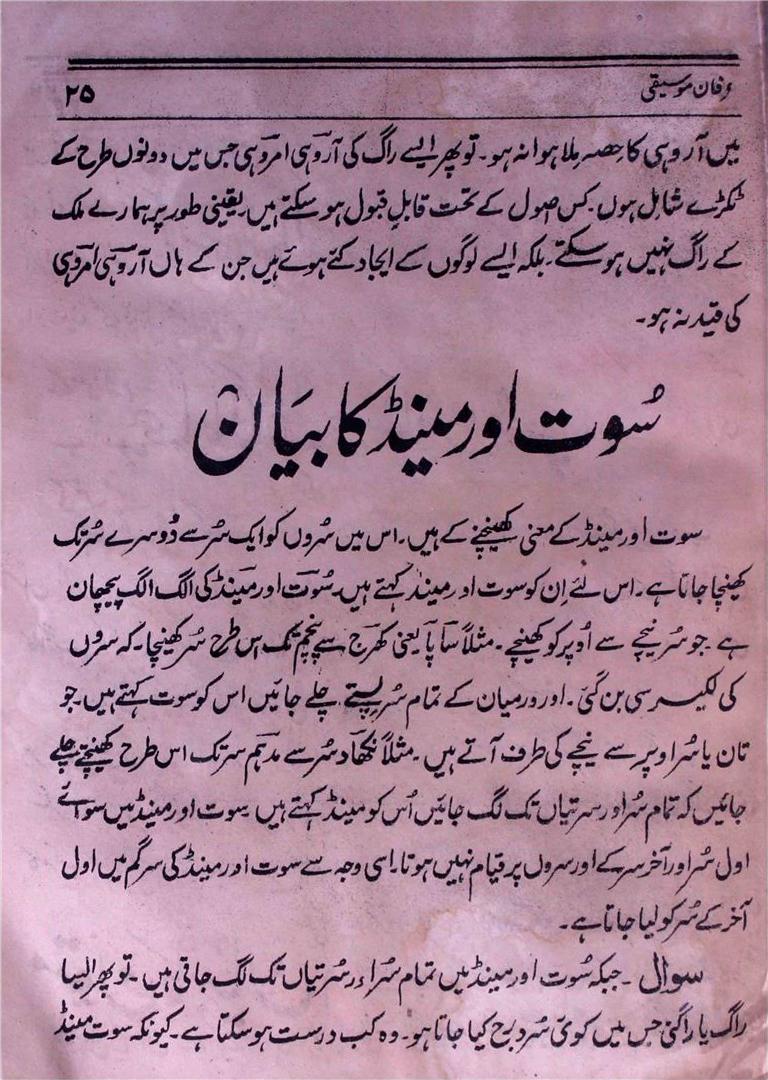 عرفان موسیقی ۲۵
میں آروہی کا حصہ ملا ہوا نہ ہو۔ تو پھر ایسے راگ کی آروہی امروہی جس میں دونوں طرح کے
ٹکڑے شامل ہوں۔ کس اصول کے تحت قابل قبول ہو سکتے ہیں۔ یقینی طور پر ہمارے ملک
کے راگ نہیں ہو سکتے۔ بلکہ ایسے لوگوں کے ایجاد کئے ہوئے ہیں جن کے ہاں آروہی امروہی
کی قید نہ ہو۔
سُوت اور مینڈ کا بیَان
سوت اور مینڈ کے معنی کھینچنے کے ہیں۔ اس میں سُروں کو ایک سُر سے دُوسرے سُر تک
کھینچا جاتا ہے۔ اس لئے اِن کو سوت اور مینڈ کہتے ہیں۔ سُوت اور مینڈ کی الگ الگ پہچان
ہے۔ جو سُر نیچے سے اُوپر کو کھینچے۔ مثلاً سا پا یعنی کھرج سے پنچم تک اس طرح سُر کھینچا۔ کہ سروں
کی لکیر سی بن گئی۔ اور ورمیان کے تمام سُر پستے چلے جائیں اس کو سوت کہتے ہیں۔ جو
تان یا سُر اوپر سے نیچے کی طرف آتے ہیں۔ مثلاً نکھاد سُر سے مدہم سر تک اس طرح کھینچتے چلے
جائیں کہ تمام سُر اور سرتیاں تک لگ جائیں اُس کو مینڈ کہتے ہیں۔ سوت اور مینڈ میں سوائے
اول سُر اور آخر سر کے اور سروں پر قیام نہیں ہوتا۔ اسی وجہ سے سوت اور مینڈ کی سرگم میں اول
آخر کے سُر کو لیا جاتا ہے۔
سوال۔ جبکہ سُوت اور مینڈ میں تمام سُر اور سُرتیاں تک لگ جاتی ہیں۔ تو پھر ایسا
راگ یا راگنی جس میں کوئی سُر درج کیا جاتا ہو۔ وہ کب درست ہو سکتا ہے۔ کیونکہ سوت مینڈ